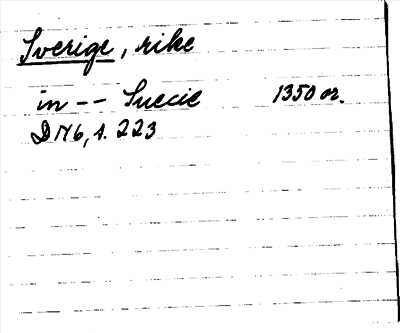 Sverige, rike
in -- Suecie 1350 or.
DN6, s. 223